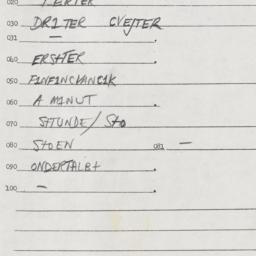 020 FERTER
030 DRITER CVEJTER
031 —
040 ERSHTER
050 FINFINCVANCIK
060 A MINUT
070 SHTUNDE / SHO
080 SHOEN 081 —
090 ONDERTALBT
100 —